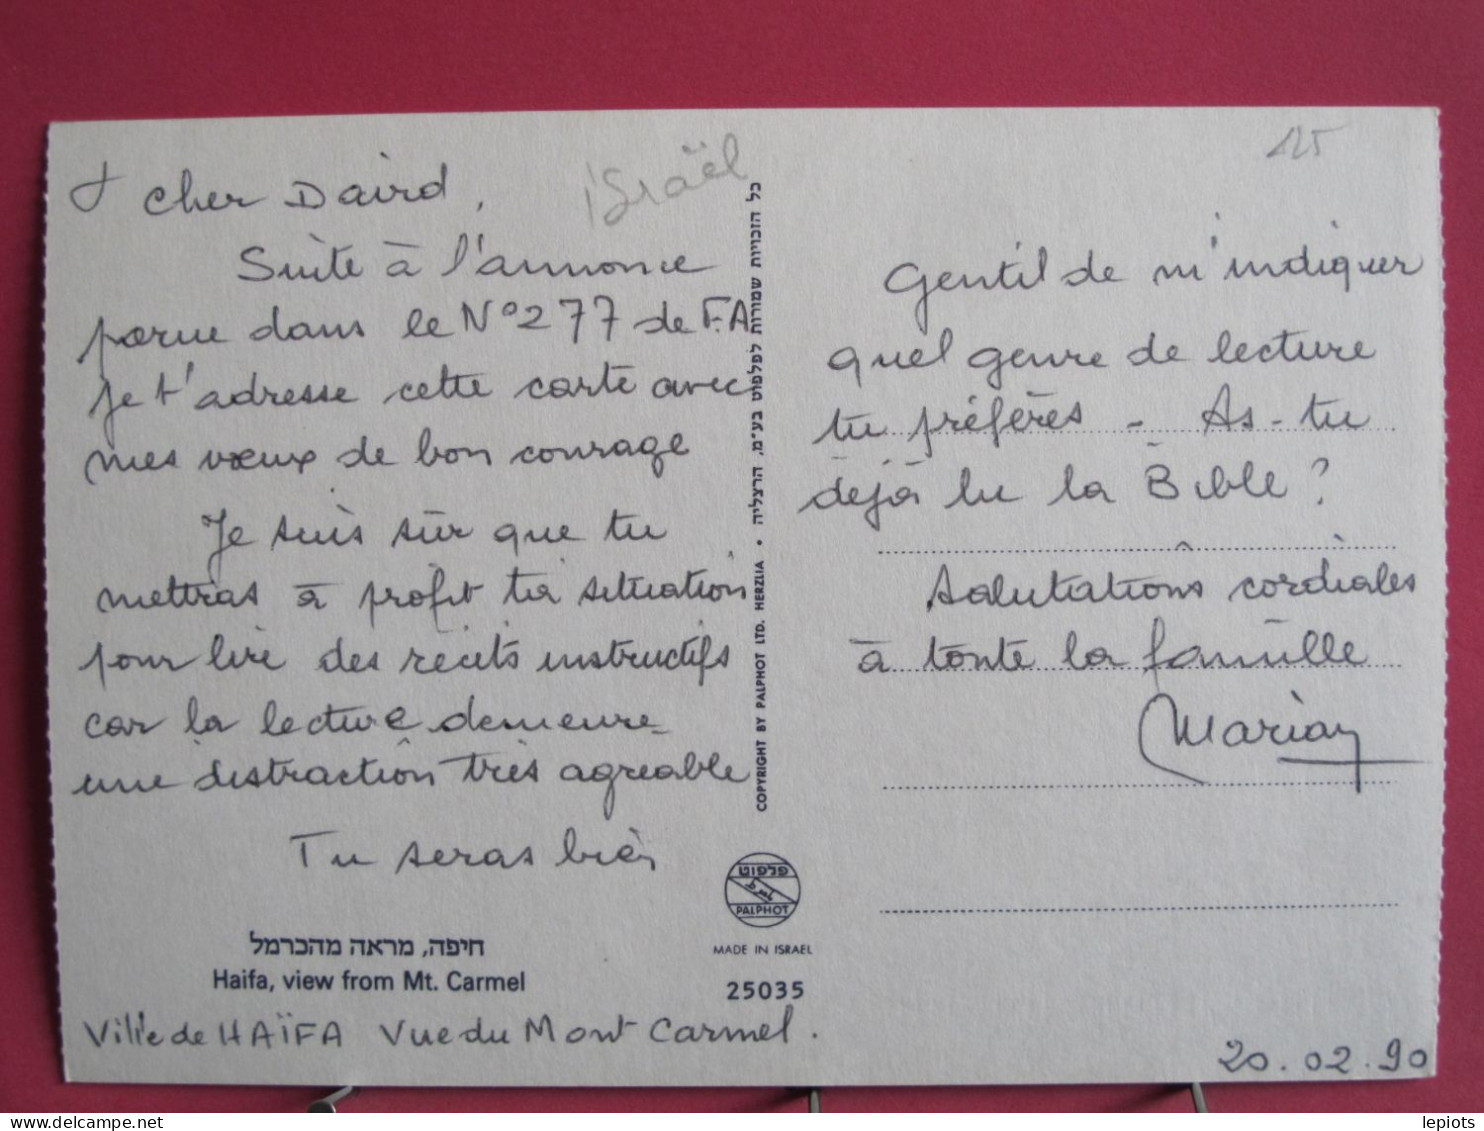 cher David,
israël
Suite à l'annonce
parue dans le N° 277 de F.A
je t'adresse cette carte avec
mes vœux de bon courage
Je suis sûr que tu
mettras à profit ta situation
pour lire des récits instructifs
car la lecture demeure
une distraction très agréable
Tu seras bien
חיפה, מראה מהכרמל
Haifa, view from Mt. Carmel
Ville de HAÏFA Vue du Mont Carmel.
כל הזכויות שמורות לפלפוט בע"מ, הרצליה •
COPYRIGHT BY PALPHOT LTD. HERZLIA
פלפוט
PALPHOT
MADE IN ISRAEL
25035
125
Gentil de m'indiquer
quel genre de lecture
tu préfères - As-tu
déjà lu la Bible?
Salutations cordiales
à toute la famille
Marian
20.02.90
lepiots